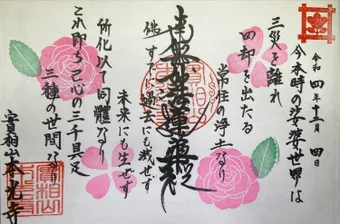 令和四年十二月四日
今本時の娑婆世界は
三災を離れ
四劫を出たる
常住の浄土なり
南無妙法蓮華経
佛すでに過去にも滅せず
未来にも生ぜず
所化以て同體なり
これ即ち己心の三千具足
三種の世間なり
實相山